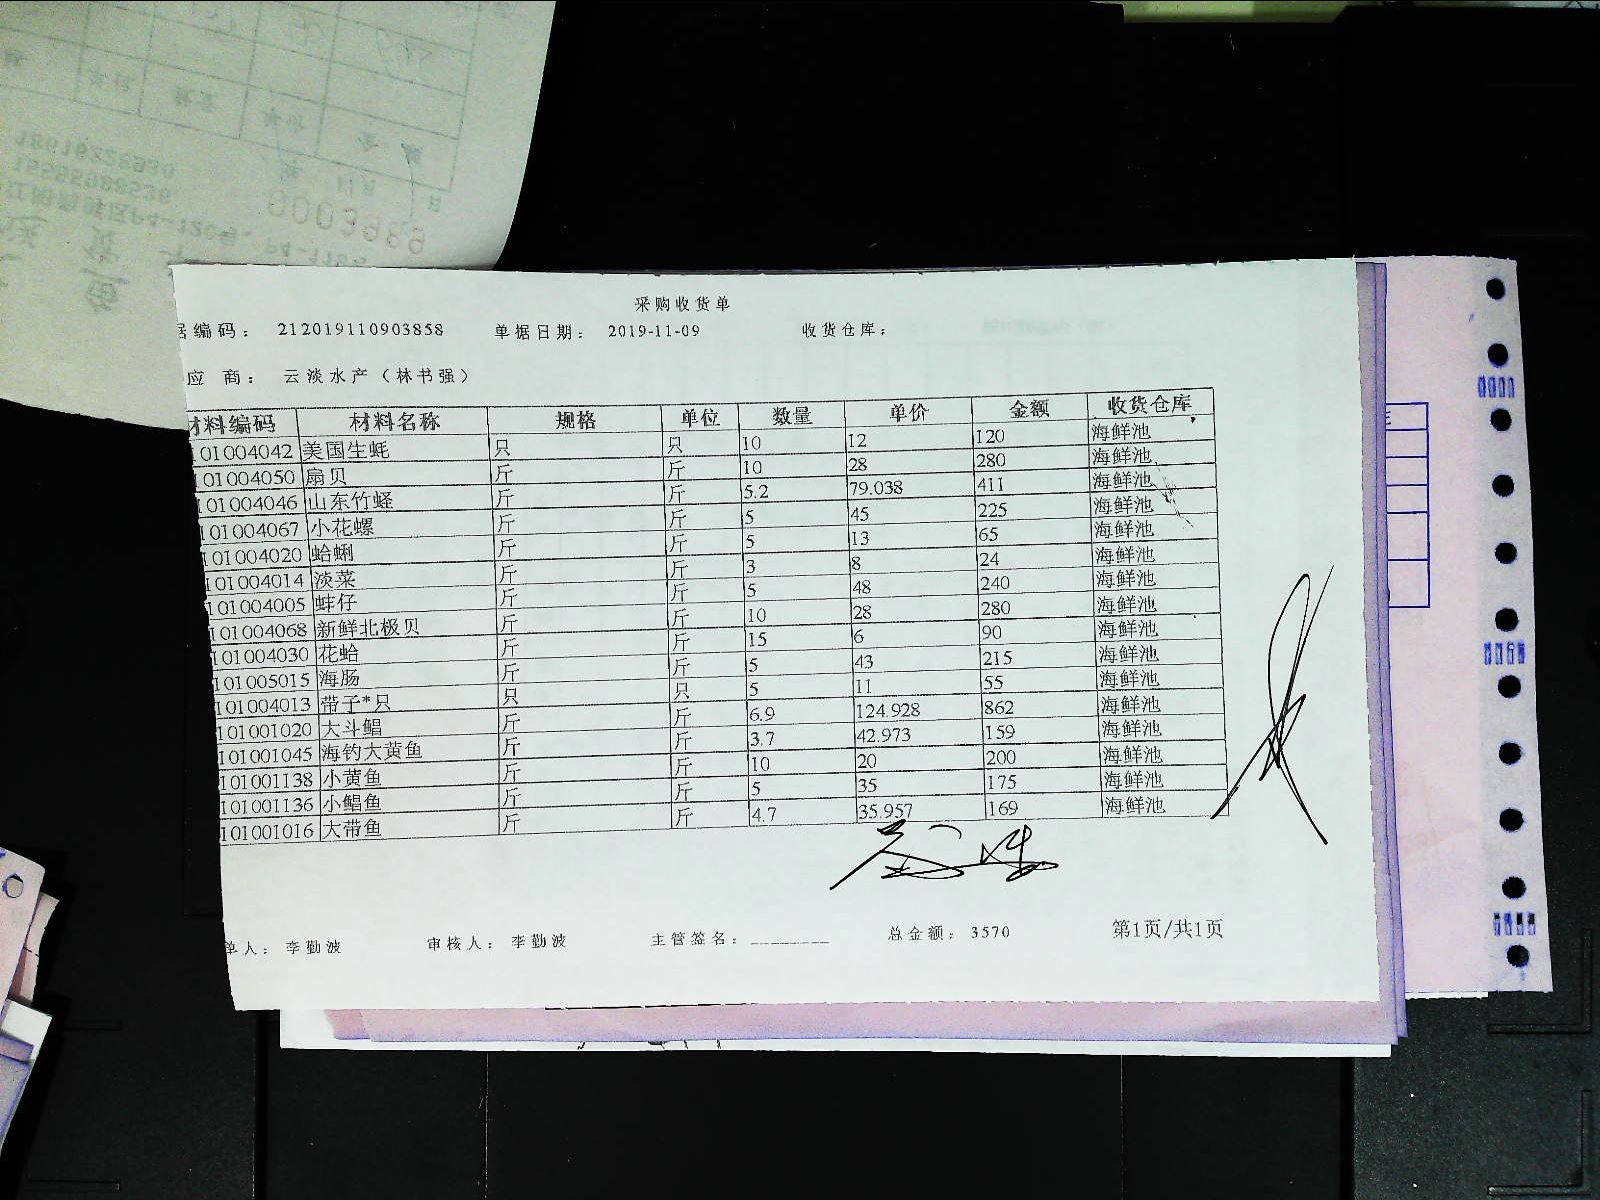 采购收货单
据编码： 212019110903858 单据日期： 2019-11-09 收货仓库：
应 商： 云淡水产（林书强）
材料编码 材料名称 规格 单位 数量 单价 金额 收货仓库
101004042 美国生蚝 只 只 10 12 120 海鲜池
101004050 扇贝 斤 斤 10 28 280 海鲜池
101004046 山东竹蛏 斤 斤 5.2 79.038 411 海鲜池
101004067 小花螺 斤 斤 5 45 225 海鲜池
101004020 蛤蜊 斤 斤 5 13 65 海鲜池
101004014 淡菜 斤 斤 3 8 24 海鲜池
101004005 蚌仔 斤 斤 5 48 240 海鲜池
101004068 新鲜北极贝 斤 斤 10 28 280 海鲜池
101004030 花蛤 斤 斤 15 6 90 海鲜池
101005015 海肠 斤 斤 5 43 215 海鲜池
101004013 带子*只 只 只 5 11 55 海鲜池
101001020 大斗鲳 斤 斤 6.9 124.928 862 海鲜池
101001045 海钓大黄鱼 斤 斤 3.7 42.973 159 海鲜池
101001138 小黄鱼 斤 斤 10 20 200 海鲜池
101001136 小鲳鱼 斤 斤 5 35 175 海鲜池
101001016 大带鱼 斤 斤 4.7 35.957 169 海鲜池
单人： 李勤波 审核人： 李勤波 主管签名：________ 总金额： 3570 第1页/共1页